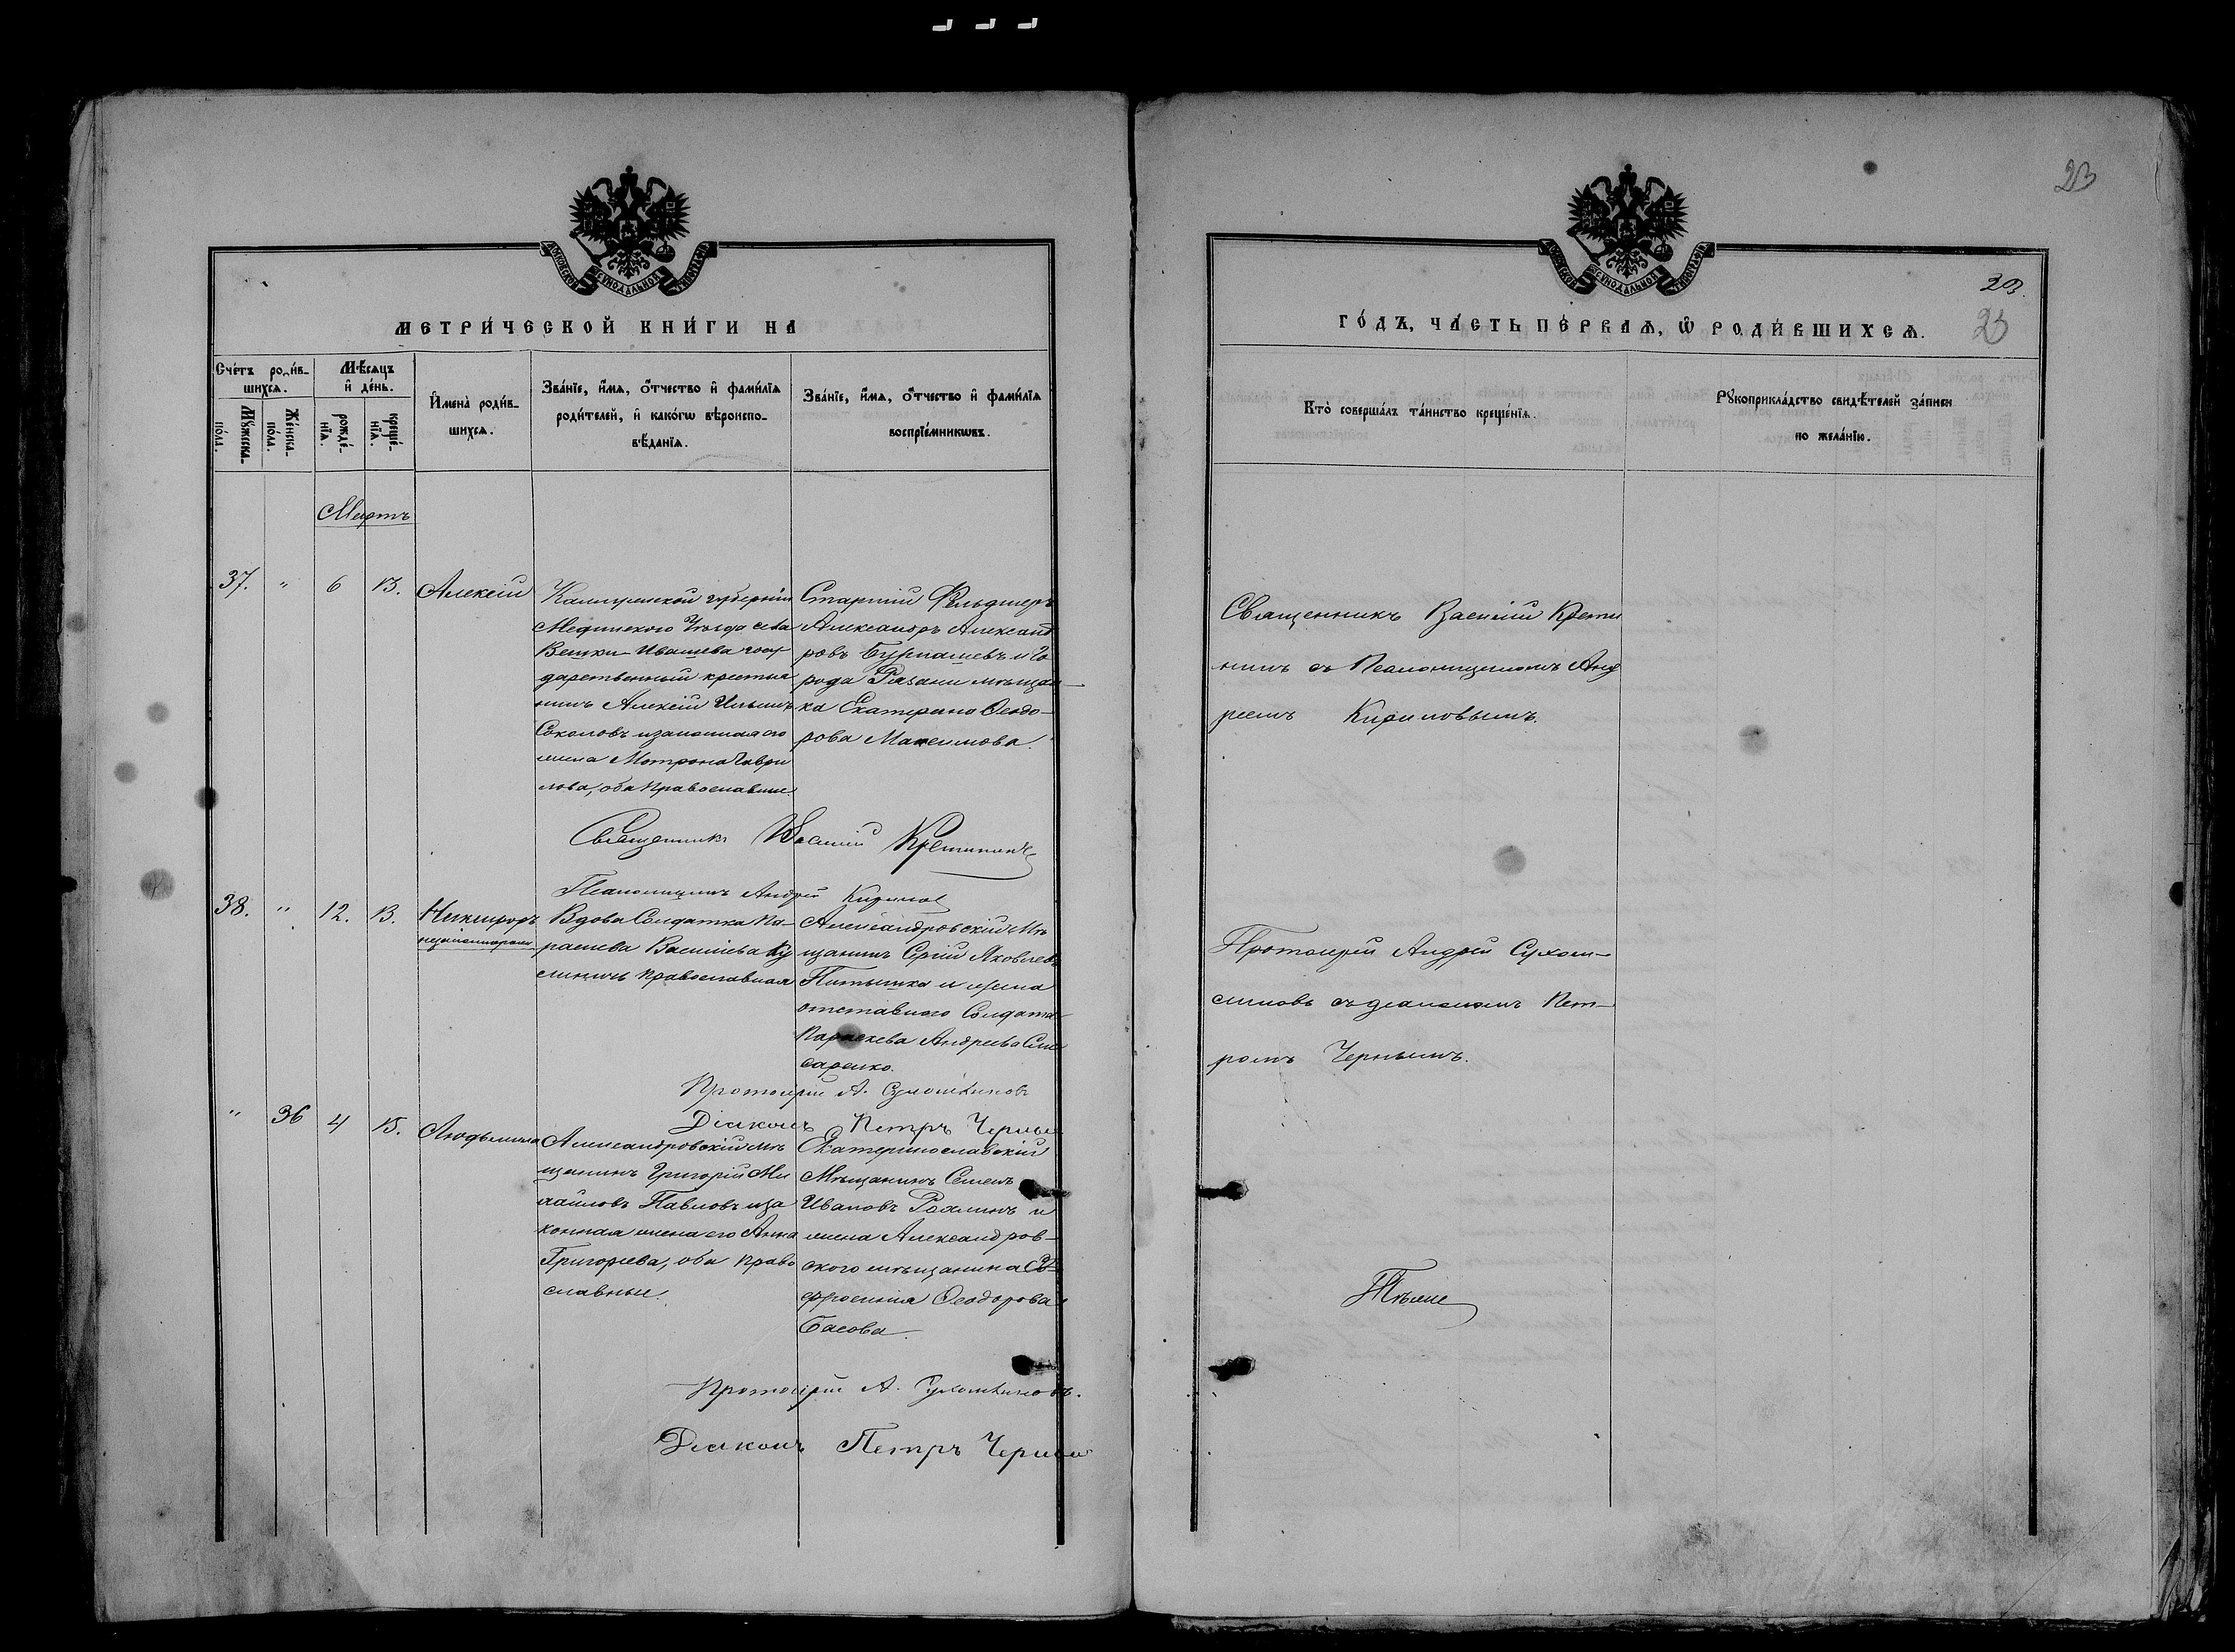 23
МОСКОВСКОЙ СѴНОДАЛЬНОЙ ТИПОГРАФІИ
МЕТРИ́ЧЕСКОЙ КНИ́ГИ НА
Сче́тъ роди́в-
шихсѧ.
Мѣ́сяцъ
и҆ де́нь.
И҆мена̀ роди́в-
шихсѧ.
Зва́нїе, и҆́мѧ, ѻ҆́тчество и҆ фами́лїѧ
роди́телей, и҆ како́гѡ вѣроиспо-
вѣ́данїѧ.
Зва́нїе, и҆́мѧ, ѻ҆́тчество и҆ фами́лїѧ
воспрїе́мникѡвъ.
Мꙋ́жеска-
по́ла.
Же́нска-
по́ла.
рожде́-
нїѧ.
креще́-
нїѧ.
Мартъ
37. " 6 13. Алексій
Калужской губерніи
Мединскаго Уѣзда села
государственный крестья
нинъ Алексій Ильинъ
Соколовъ и законная его
жена Матрона Гаври
лова, оба Православные
Старшій Фельдшеръ
Александръ Александ
ровъ Бурнашевъ и Го
рода Рязани мѣщан
ка Екатерина Ѳеодо-
рова Максимова.
Священникъ Василій
Псаломщикъ Андрей Кирилов
38. " 12. 13. Никифоръ
незаконнорожд.
Вдова Солдатка Па-
раскева Василіева
Православная
Александровскій Мѣ
щанинъ Сергій Яковлевъ
и жена
отставнаго Солдата
Параскева Андреева Слю
саренко.
Протоіерей А. Сухомлиновъ
Діаконъ Петръ Черный
" 36 4 15. Людьмила
Александровскій мѣ
щанинъ Григорій Ми
хайловъ Павловъ и за
конная жена его Анна
Григорьева, оба Право
славные.
Екатеринославскій
Мѣщанинъ Семенъ
Ивановъ и
жена Александров-
скаго мѣщанина Ев
фросинія Ѳеодорова
Басова.
Протоіерей А. Сухомлиновъ.
Діаконъ Петръ Черный
23
МОСКОВСКОЙ СѴНОДАЛЬНОЙ ТИПОГРАФІИ
23.
ГО́ДЪ, ЧА́СТЬ ПЕ́РВАѦ, Ѡ҆ РОДИ́ВШИХСѦ.
23
Кто̀ соверша́лъ та́инство креще́нїѧ.
Рꙋкоприкла́дство свидѣ́телей за́писи
по жела́нїю.
Священникъ Василій Крети
нинъ съ Псаломщикомъ Анд
реемъ Кириловымъ.
Протоіерей Андрей Сухом-
линовъ съ діакономъ Пет-
ромъ Чернымъ.
Тѣже